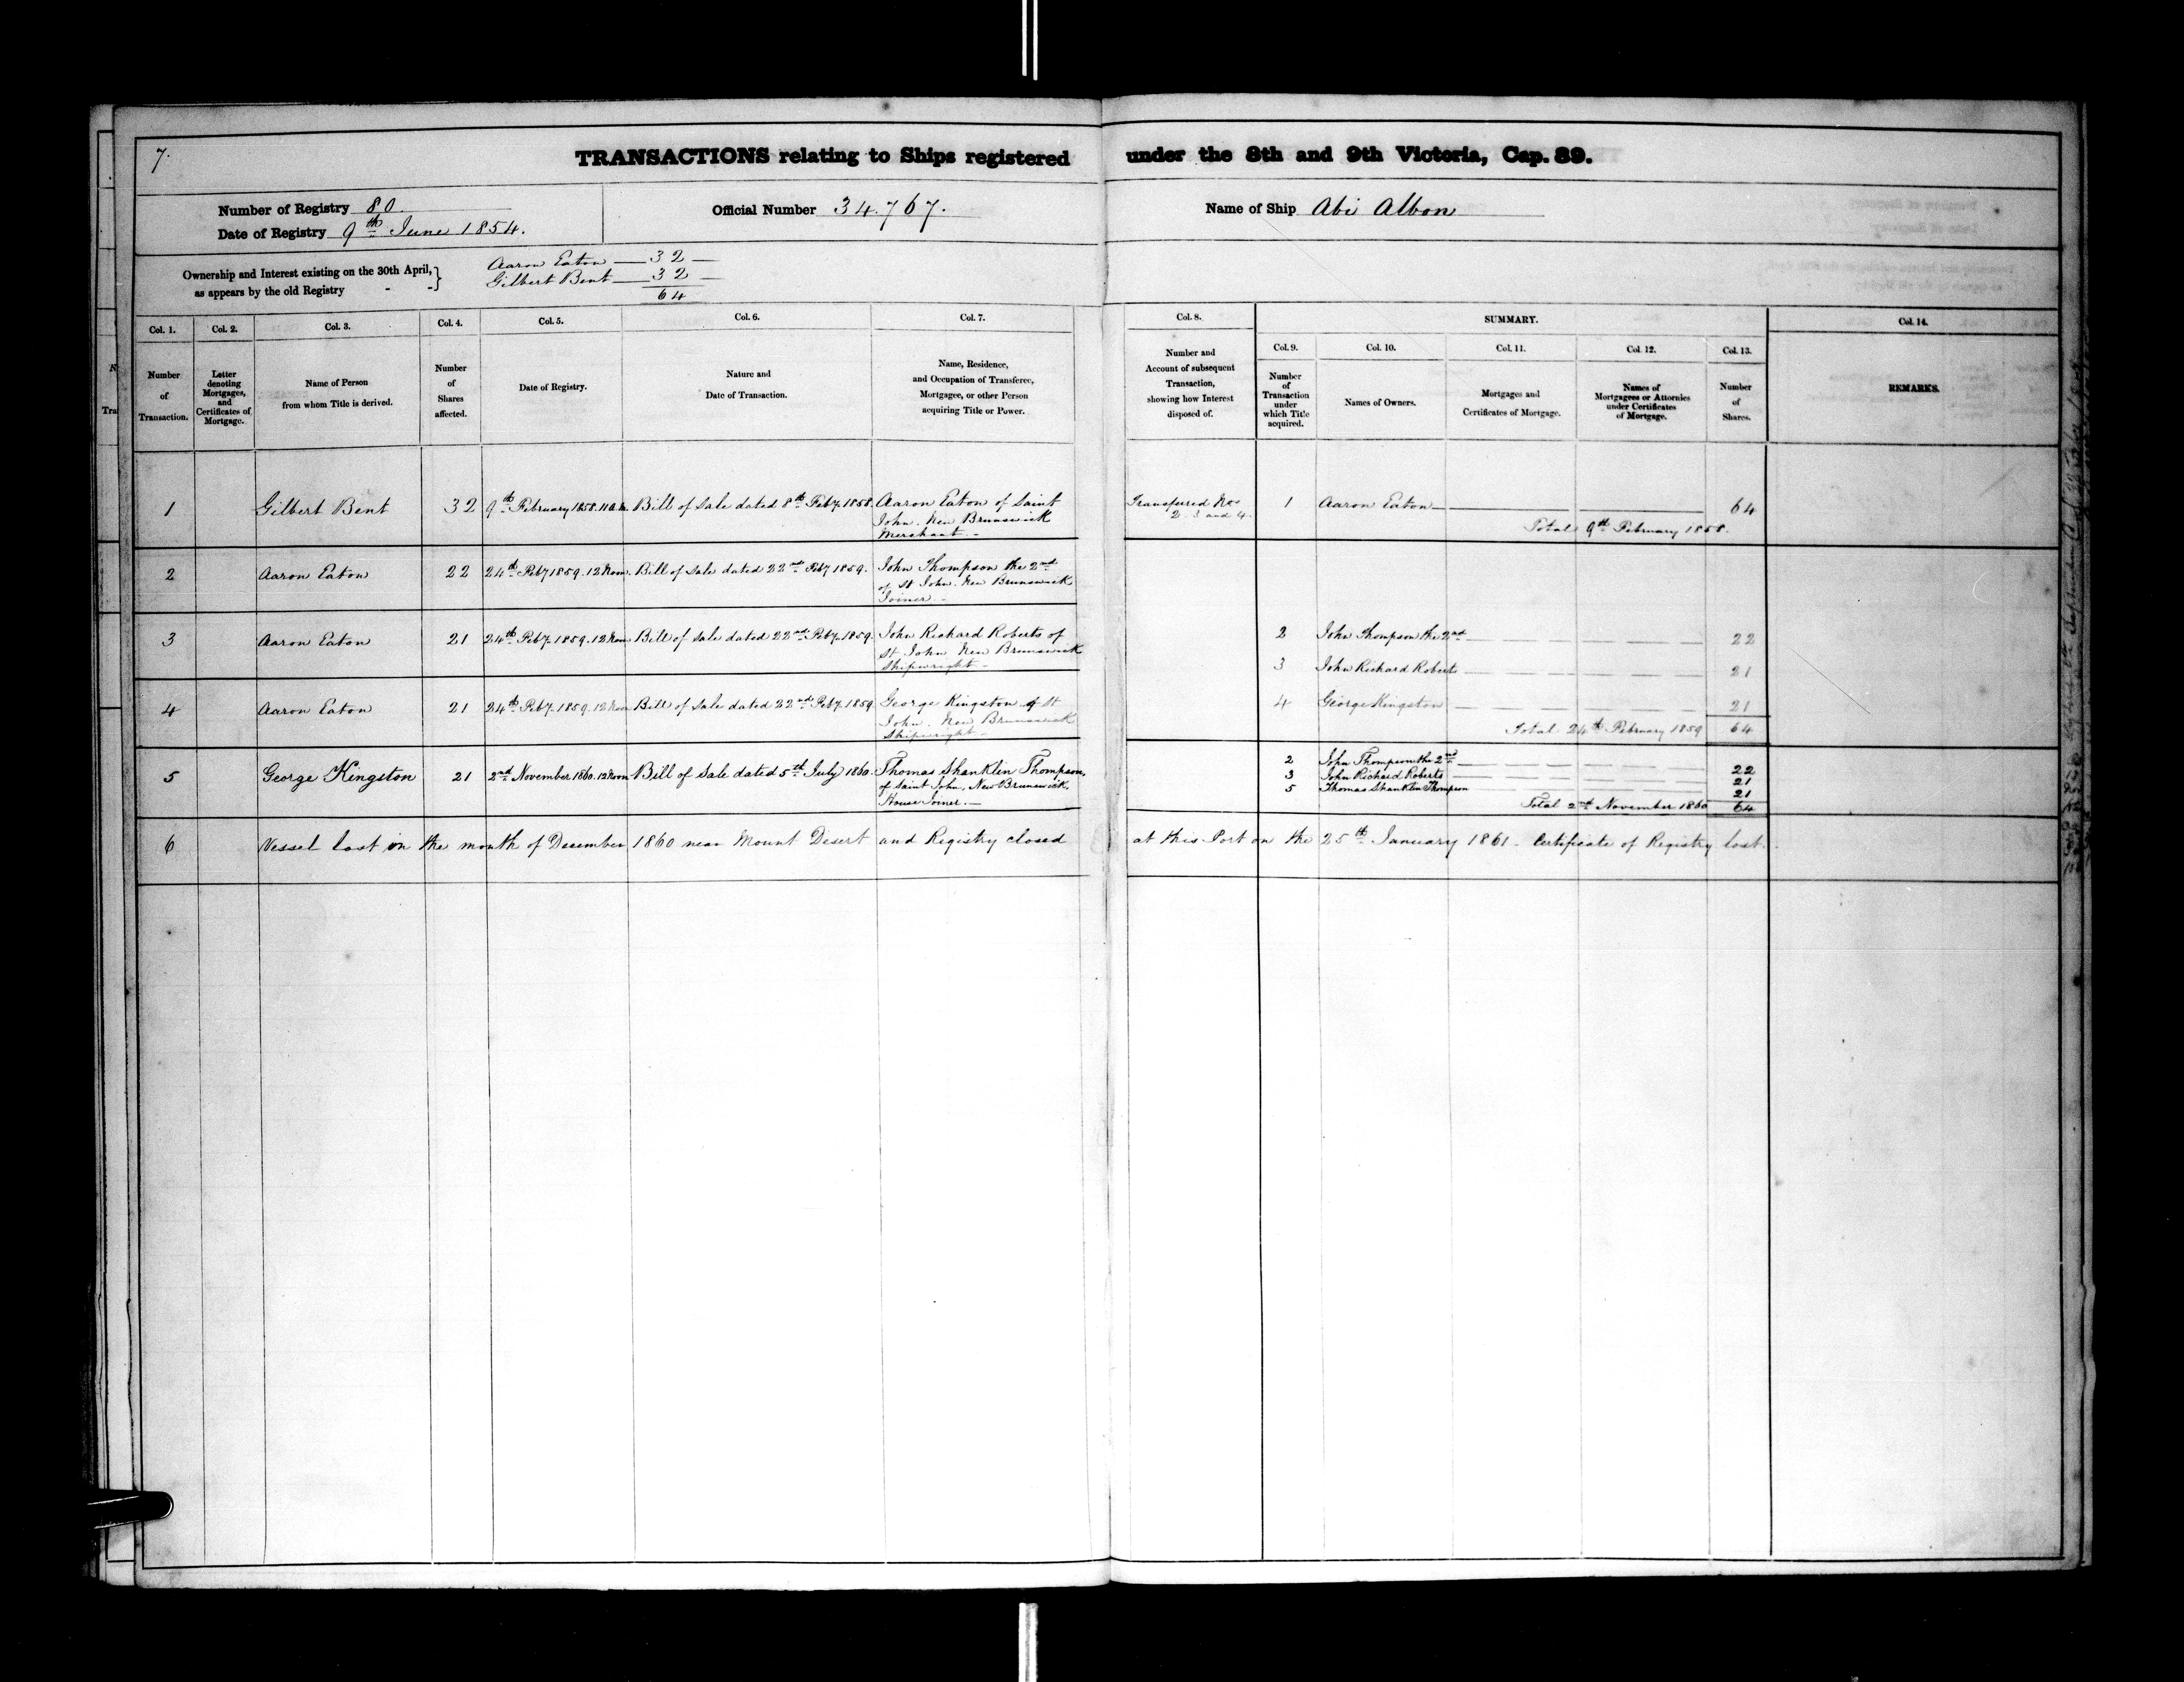 7.
TRANSACTIONS relating to Ships registered under the 8th and 9th Victoria, Cap. 89.
Number of Registry 80.
Date of Registry 9th June 1854.
Official Number 34.767.
Name of Ship Abi Albon
Ownership and Interest existing on the 30th April, }
as appears by the old Registry - -
Aaron Eaton — 32 —
Gilbert Bent — 32 —
64
Col. 1.
Number
of
Transaction.
Col. 2.
Letter
denoting
Mortgages,
and
Certificates of
Mortgage.
Col. 3.
Name of Person
from whom Title is derived.
Col. 4.
Number
of
Shares
affected.
Col. 5.
Date of Registry.
Col. 6.
Nature and
Date of Transaction.
Col. 7.
Name, Residence,
and Occupation of Transferee,
Mortgagee, or other Person
acquiring Title or Power.
Col. 8.
Number and
Account of subsequent
Transaction,
showing how Interest
disposed of.
SUMMARY.
Col. 9.
Number
of
Transaction
under
which Title
acquired.
Col. 10.
Names of Owners.
Col. 11.
Mortgages and
Certificates of Mortgage.
Col. 12.
Names of
Mortgagees or Attornies
under Certificates
of Mortgage.
Col. 13.
Number
of
Shares.
Col. 14.
REMARKS.
1 Gilbert Bent 32 9th February 1858. 11 a.m. Bill of Sale dated 8th Feby 1858. Aaron Eaton of Saint
John. New Brunswick
Merchant. -
Transferred Nos
2. 3 and 4.
1 Aaron Eaton 64
Total 9th February 1858.
2 Aaron Eaton 22 24th Feby 1859. 12 Noon. Bill of Sale dated 22nd Feby 1859. John Thompson the 2nd
of St John. New Brunswick
Joiner. -
3 Aaron Eaton 21 24th Feby 1859. 12 Noon Bill of Sale dated 22nd Feby 1859. John Richard Roberts of
St John New Brunswick
Shipwright -
2 John Thompson the 2nd 22
3 John Richard Roberts 21
4 Aaron Eaton 21 24th Feby 1859. 12 Noon Bill of Sale dated 22nd Feby 1859 George Kingston of St
John. New Brunswick
Shipwright -
4 George Kingston 21
Total 24th February 1859 64
5 George Kingston 21 2nd November 1860. 12 Noon Bill of Sale dated 5th July 1860. Thomas Shanklin Thompson,
of Saint John, New Brunswick,
House Joiner. -
2 John Thompson the 2nd 22
3 John Richard Roberts 21
5 Thomas Shanklin Thompson 21
Total 2nd November 1860 64
6 Vessel lost in the month of December 1860 near Mount Desert and Registry closed at this Port on the 25th January 1861 - Certificate of Registry lost.